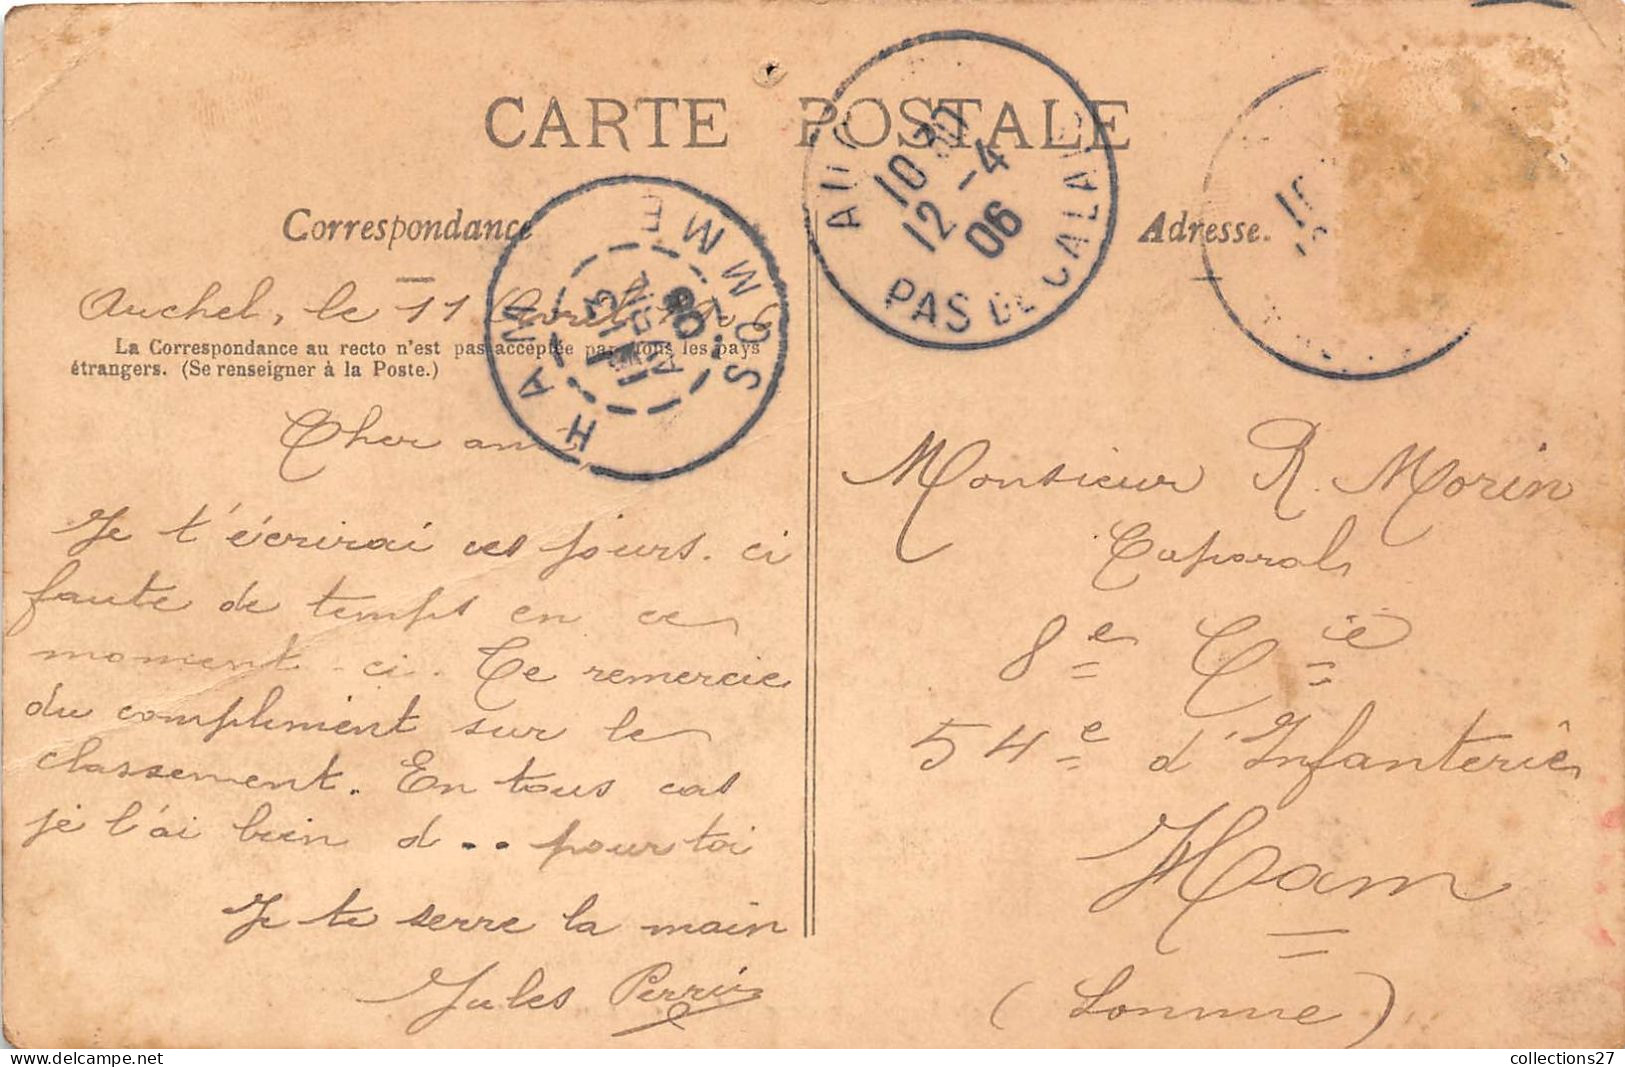 CARTE POSTALE
Correspondance
Adresse.
Auchel, le 11 Avril
La Correspondance au recto n'est pas acceptée par tous les pays
étrangers. (Se renseigner à la Poste.)
10 30
12 -4
06
PAS DE CALAIS
HAM
SOMME
Cher ami
Je t'écrirai ces jours. ci
faute de temps en ce
moment-ci. Te remercie
du compliment sur le
classement. En tous cas
je l'ai bien d .. pour toi
Je te serre la main
Jules
Monsieur R. Morin
Caporal
8e Cie
54e d'Infanterie
Ham
(Somme)
collections27